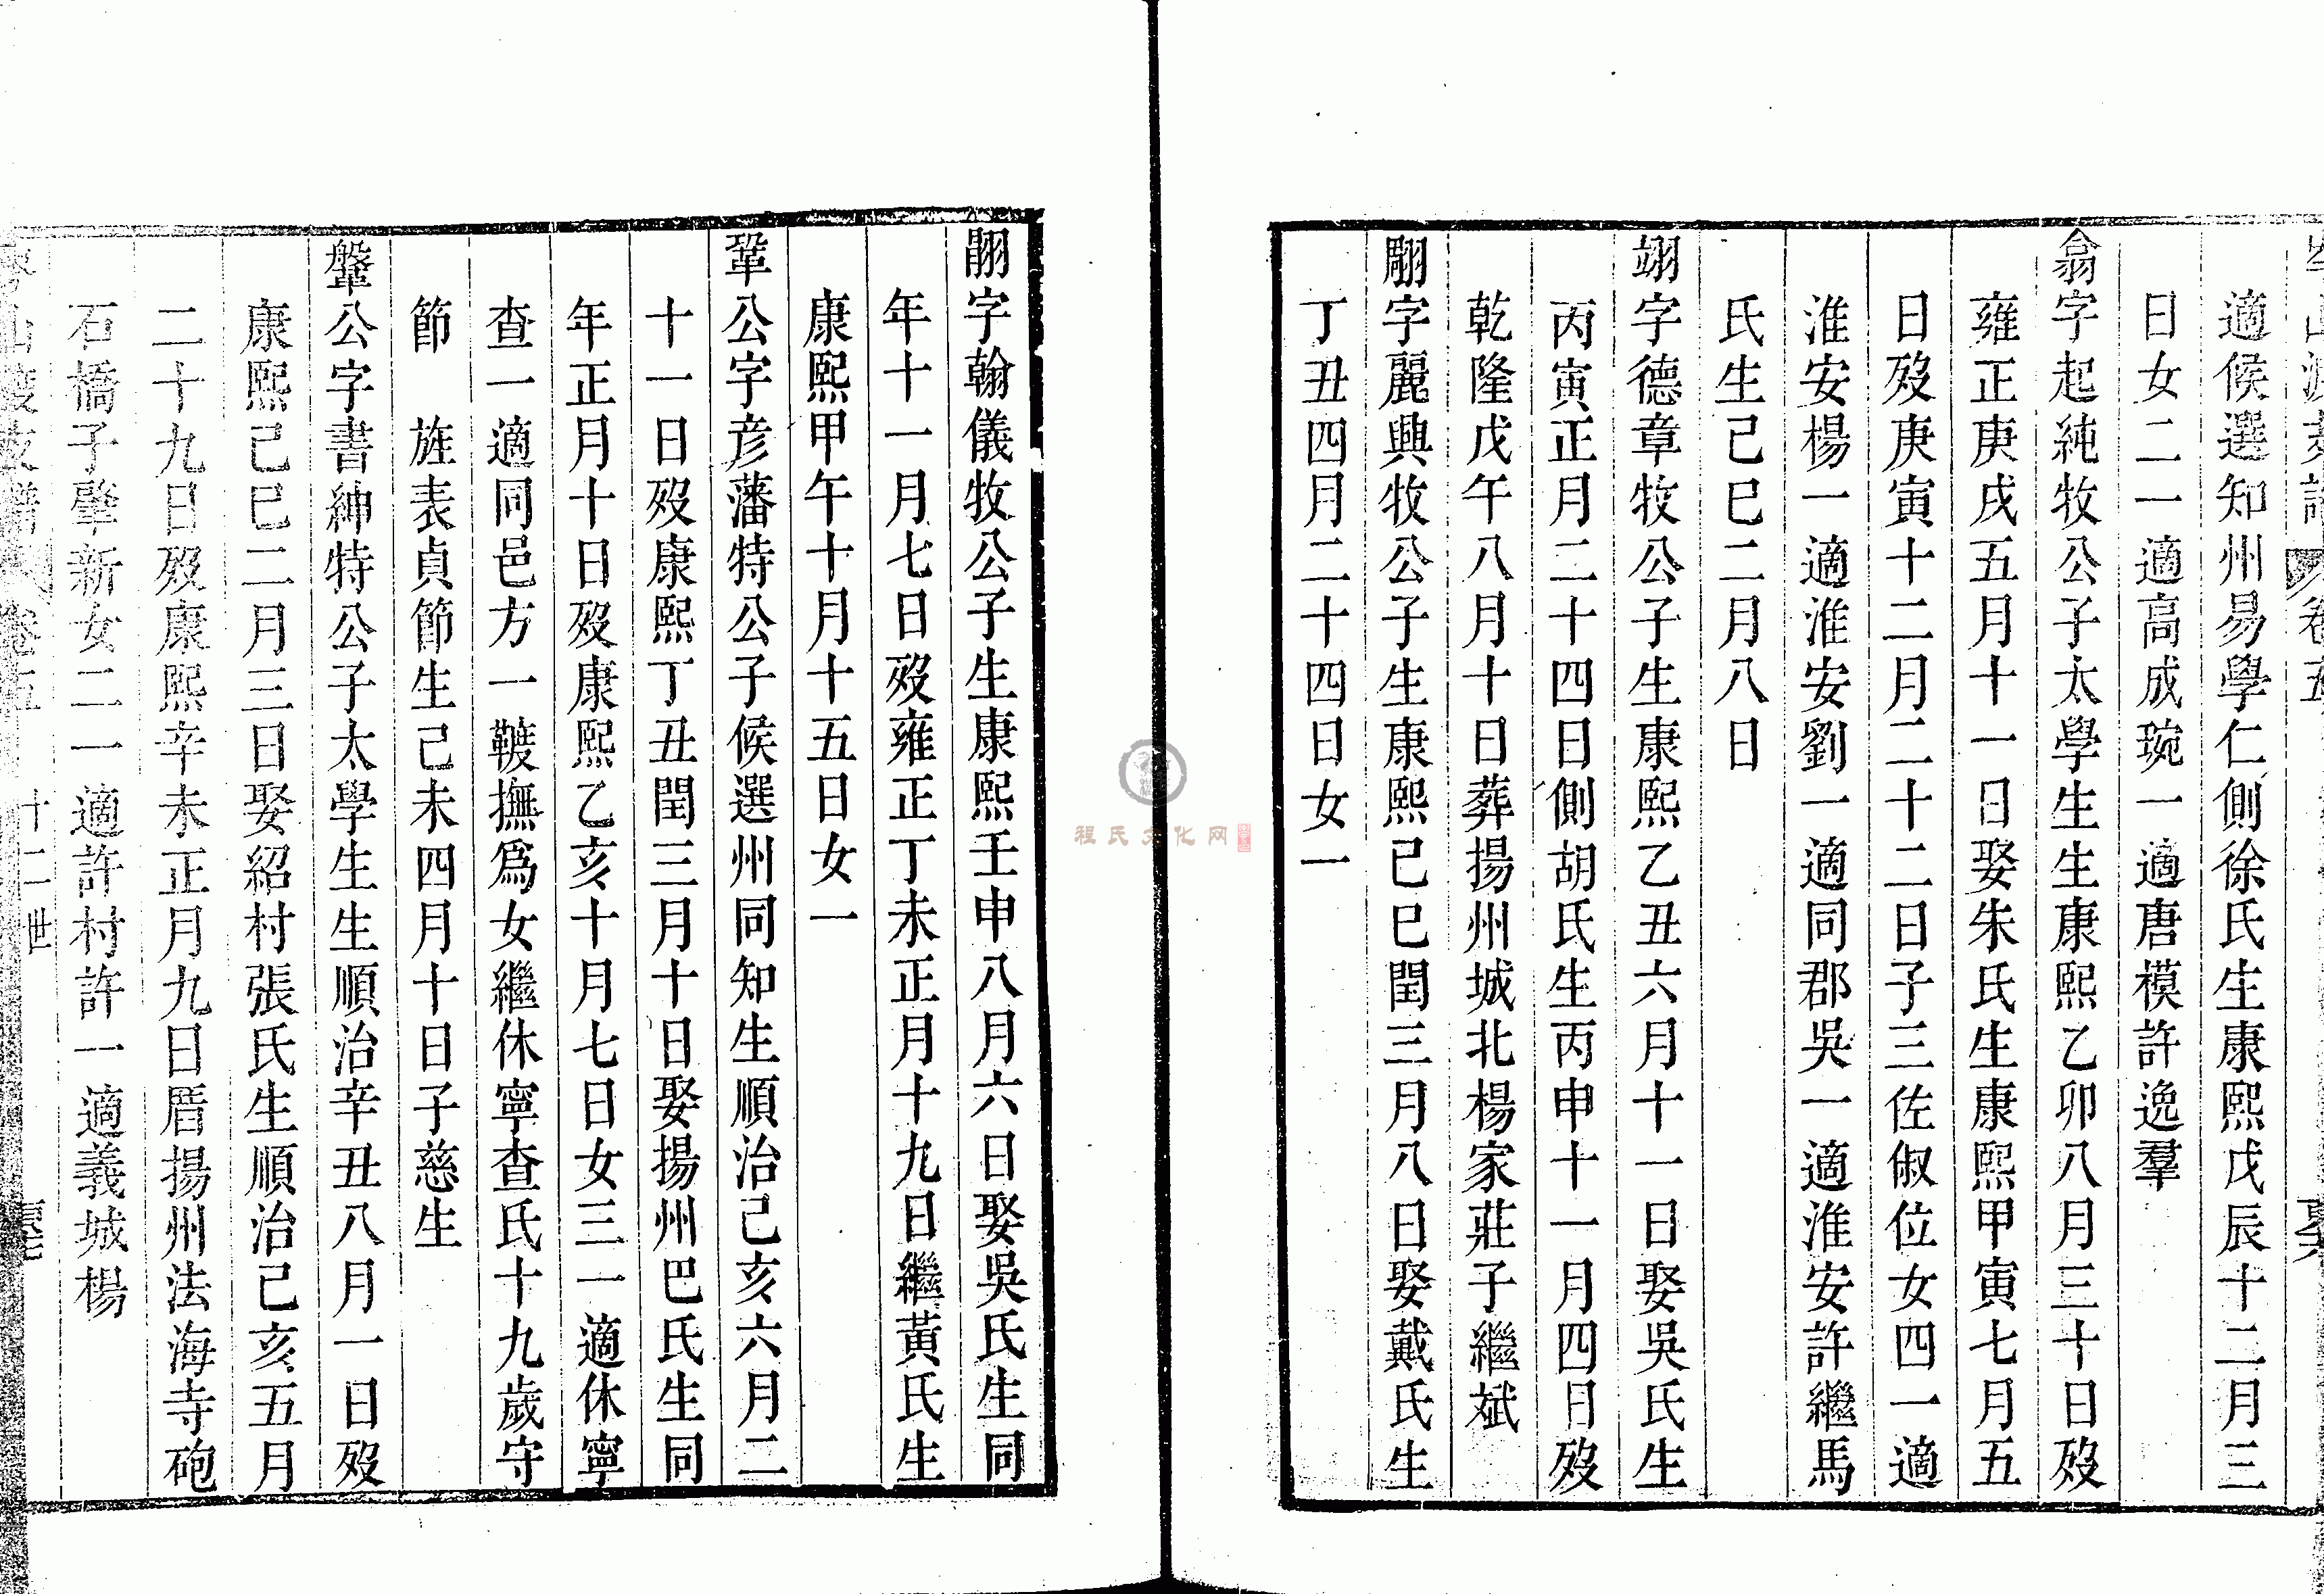 適候選知州易學仁側徐氏生康熙戊辰十二月三
日女二一適高成琬一適唐模許逸羣
翕字起純牧公子太學生生康熙乙卯八月三十日歿
雍正庚戌五月十一日娶朱氏生康熙甲寅七月五
日歿庚寅十二月二十二日子三佐俶位女四一適
淮安楊一適淮安劉一適同郡吳一適淮安許繼馬
氏生己巳二月八日
翊字德章牧公子生康熙乙丑六月十一日娶吳氏生
丙寅正月二十四日側胡氏生丙申十一月四日歿
乾隆戊午八月十日葬揚州城北楊家莊子繼斌
翮字麗興牧公子生康熙己巳閏三月八日娶戴氏生
丁丑四月二十四日女一
翢字翰儀牧公子生康熙壬申八月六日娶吳氏生同
年十一月七日歿雍正丁未正月十九日繼黃氏生
康熙甲午十月十五日女一
鞏公字彦藩特公子候選州同知生順治己亥六月二
十一日歿康熙丁丑閏三月十日娶揚州巴氏生同
年正月十日歿康熙乙亥十月七日女三一適休寧
查一適同邑方一韍撫爲女繼休寧查氏十九歲守
節旌表貞節生己未四月十日子慈生
鞶公字書紳特公子太學生生順治辛丑八月一日歿
康熙己巳二月三日娶紹村張氏生順治己亥五月
二十九日歿康熙辛未正月九日厝揚州法海寺砲
石橋子肇新女二一適許村許一適義城楊
卷五
十二世
程氏文化网